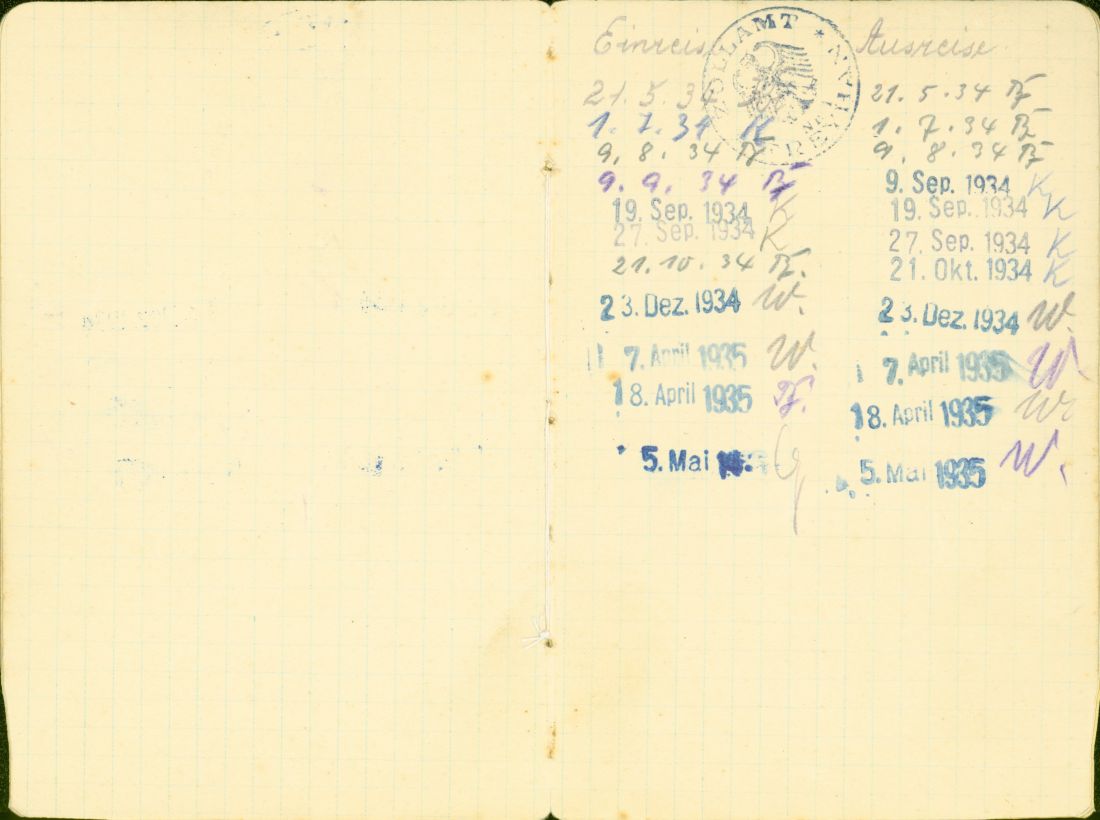 Einreise Ausreise
ZOLLAMT * FREYHAN
21. 5. 34 21. 5. 34
1. 7. 34 K 1. 7. 34
9. 8. 34 9. 8. 34
9. 9. 34 9. Sep. 1934 K
19. Sep. 1934 K 19. Sep. 1934 K
27. Sep. 1934 K 27. Sep. 1934 K
21. 10. 34 21. Okt. 1934 K
23. Dez. 1934 W. 23. Dez. 1934 W.
7. April 1935 W. 7. April 1935 W.
18. April 1935 18. April 1935 W.
5. Mai 5. Mai 1935 W.